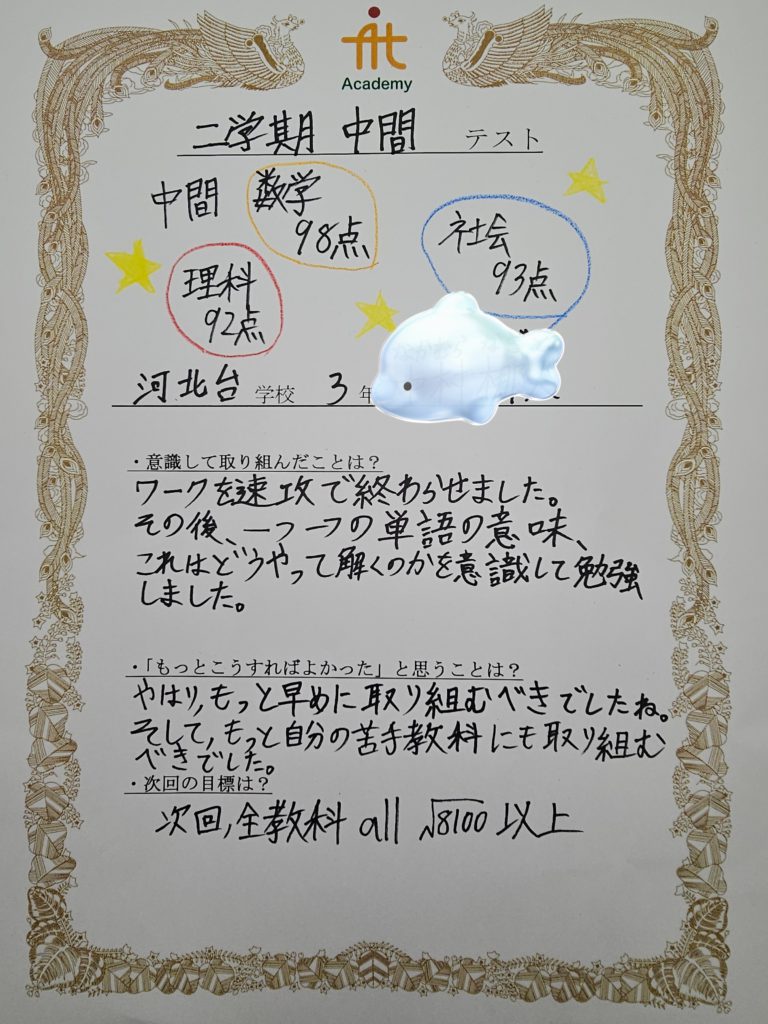 fit
Academy
二学期 中間 テスト
中間 数学
98点
社会
93点
理科
92点
河北台 学校 3 年
・意識して取り組んだことは？
ワークを速攻で終わらせました。
その後、一つ一つの単語の意味、
これはどうやって解くのかを意識して勉強
しました。
・「もっとこうすればよかった」と思うことは？
やはり,もっと早めに取り組むべきでしたね。
そして,もっと自分の苦手教科にも取り組む
べきでした。
・次回の目標は？
次回,全教科 all √8100 以上